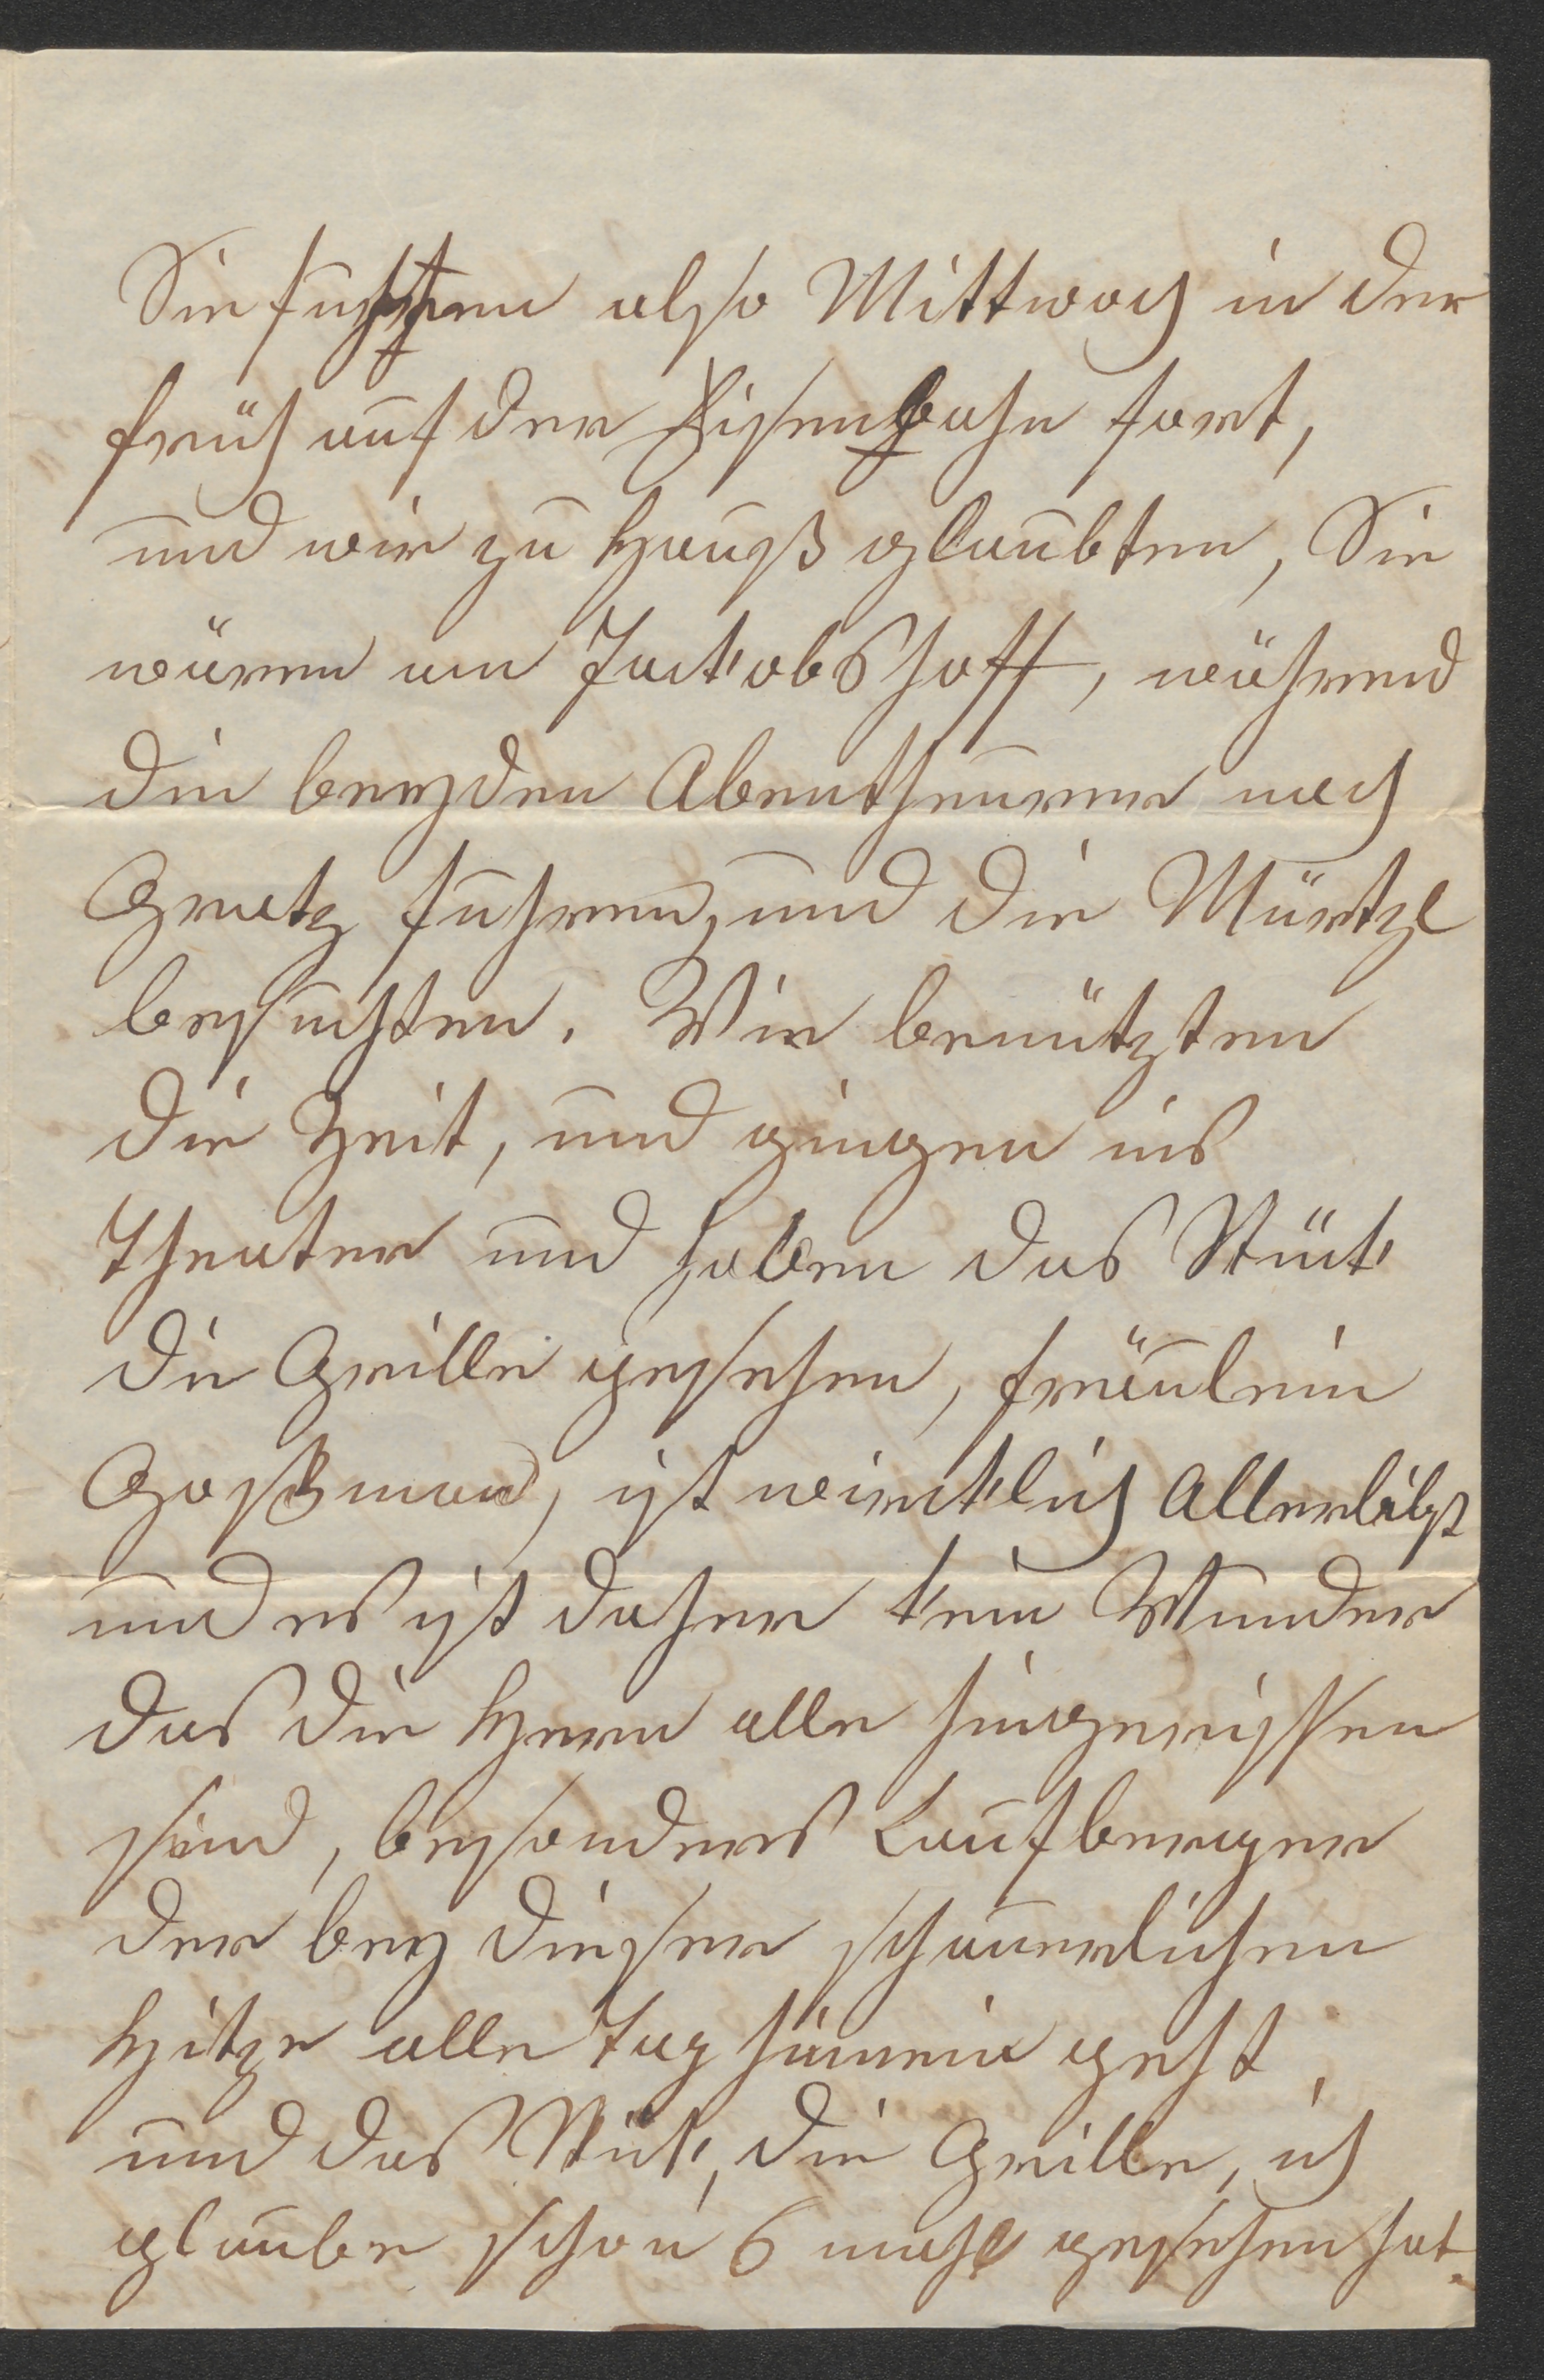 Sie fuhren also Mittwoch in der
früh auf der Eisenbahn fort,
und wir zu Hauß glaubten, Sie
wären am Jackobshoff, während
die beyden Abentheurer nach
Gratz fuhren, und die Mürtzl
besuchten. Wir benützten
die Zeit, und gingen ins
Theater und haben das Stück
die Grille gesehen, Fräulein
Goßmann, ist wircklich Allerlibst
und es ist daher kein Wunder
das die Herrn alle hingerissen
sind, besonders Laufberger
der bey dieser schauerlichen
Hitze alle Tag hinnein geht,
und das Stück, die Grille, ich
glaube schon 6 mahl gesehen hat.